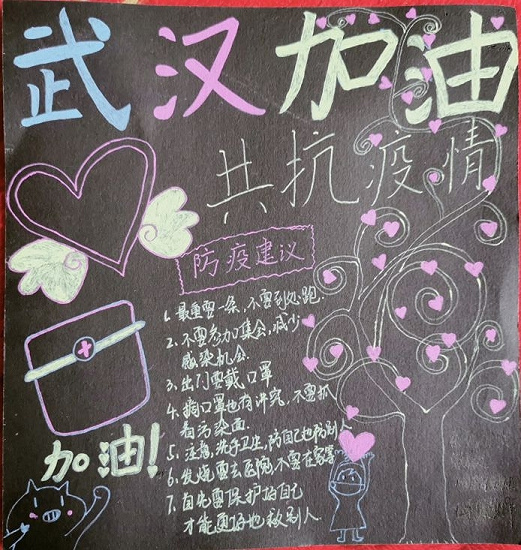 武汉加油
共抗疫情
防疫建议
1. 最重要一条，不要到处跑.
2. 不要参加集会，减少
感染机会.
3. 出门要戴口罩
4. 摘口罩也有讲究，不要抓
着污染面
5. 注意洗手卫生，防自己也防别人
6. 发烧要去医院，不要在家
7. 首先要保护好自己
才能更好地救别人.
加油!